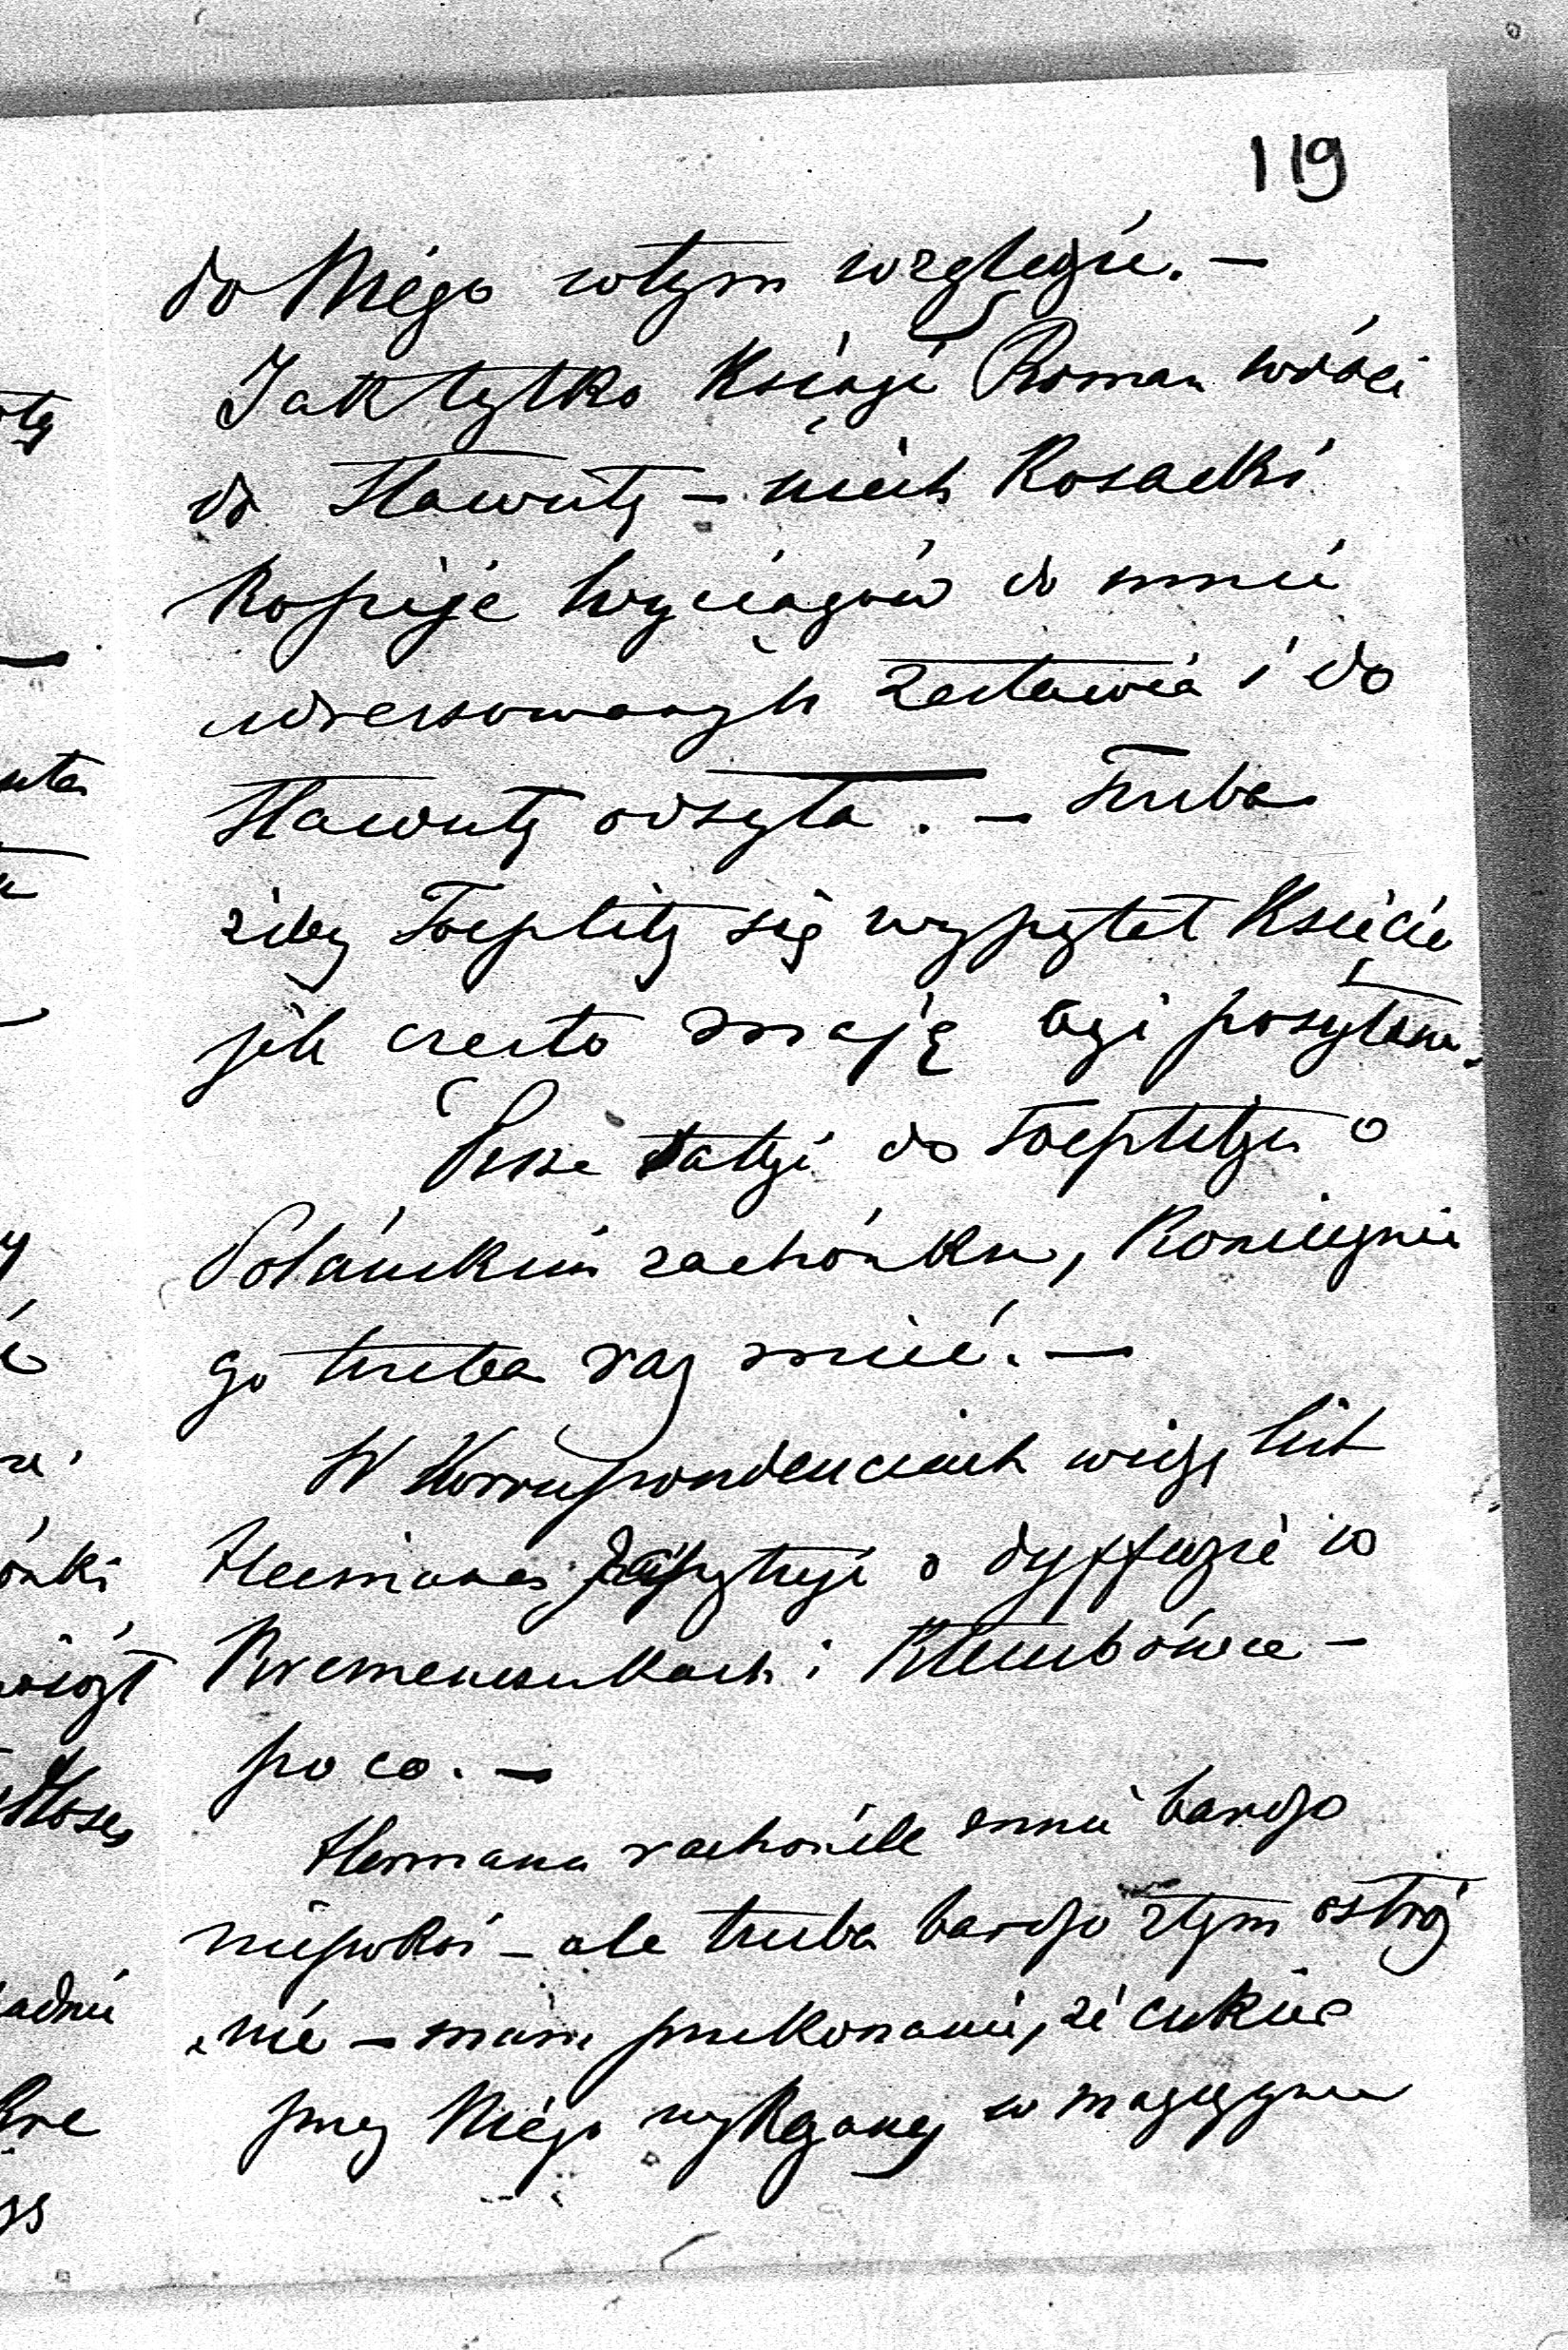 119
do Niego wtym względzie. —
Jak tylko Książe Roman wróci
do Sławuty — niech Rosadki
kopije wyciągów do mnie
adresowanych zestawia i do
Sławuty odsyła. — Trzeba
żeby Toeplitz się wypytał Księcia
jak często mają być posyłane.
Pisze także do Toeplitza o
rachónku, Koniecznie
go trzeba raz mieć. —
W Korrespondenciach widzę list
Hermana zapytuje o dyffuzie w
Kremenczukach i Klembówce —
po co. —
Hermana rachónek mnie bardzo
niepokoi — ale trzeba bardzo z tym ostroż
nie — mam przekonanie, że cukier
przez Niego wykazany w magazynie